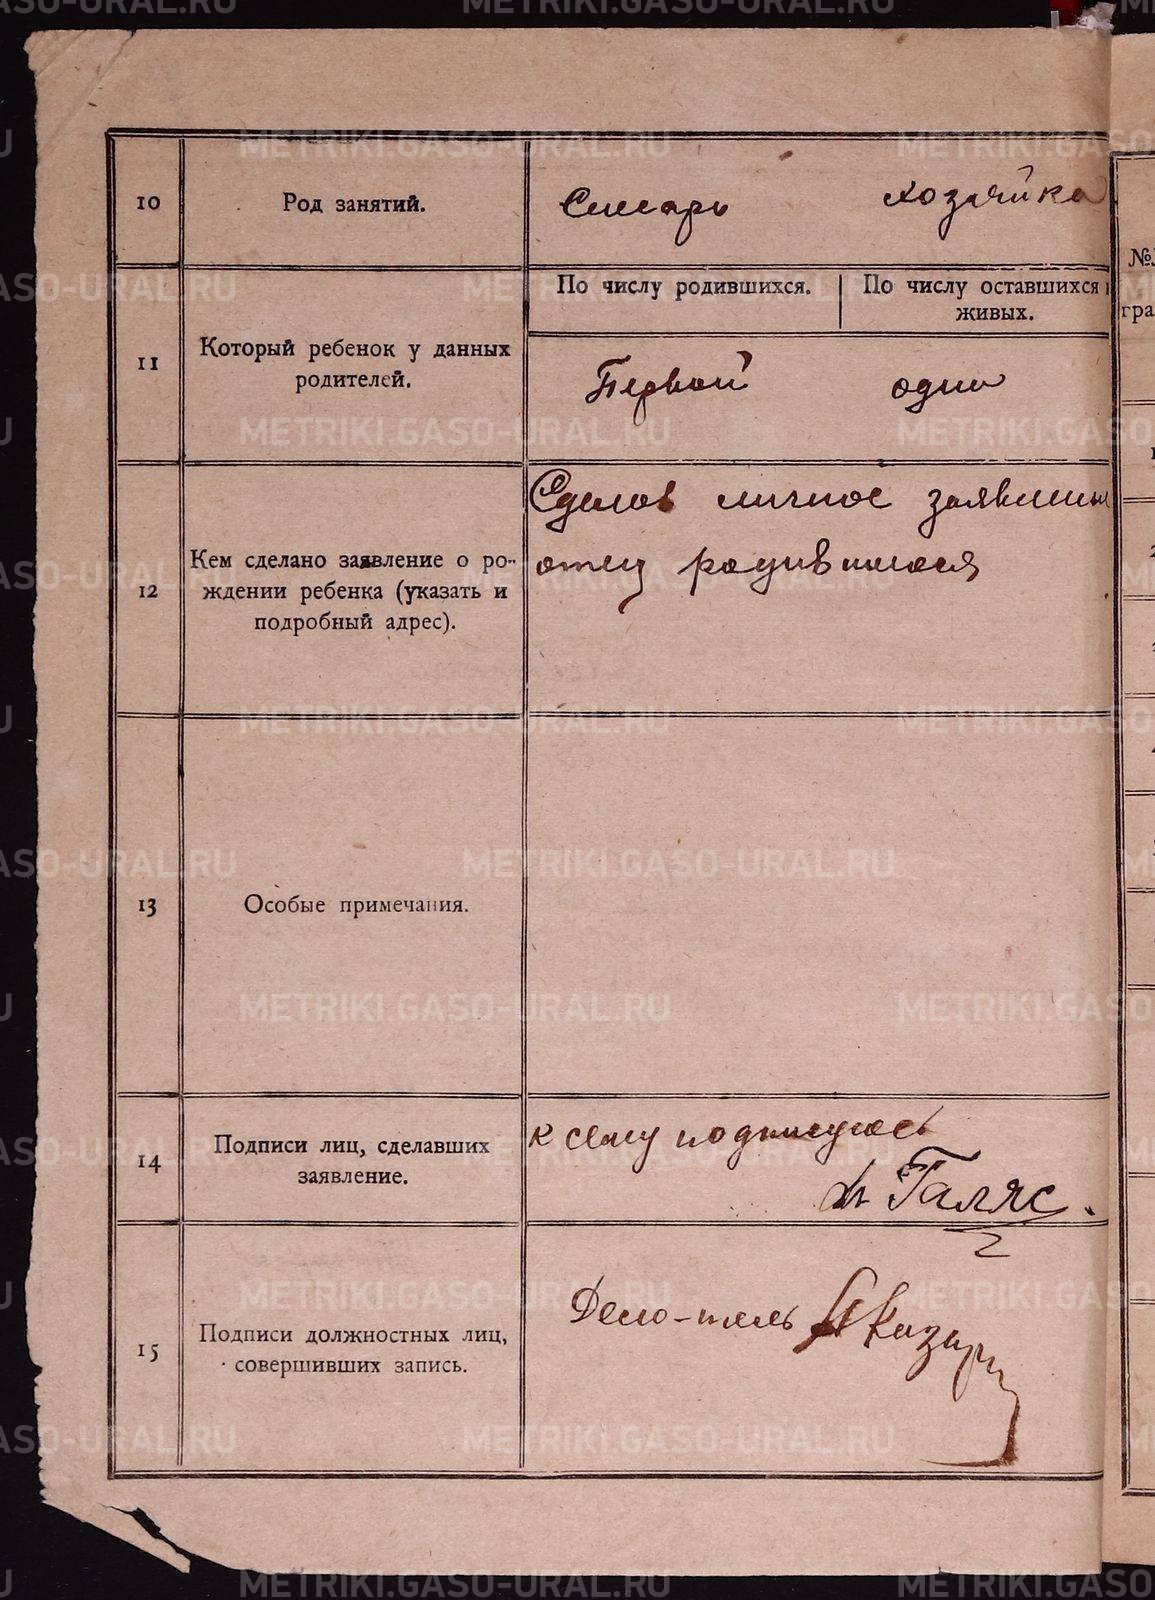 10
Род занятий.
Слесарь хозяйка
11
Который ребенок у данных
родителей.
По числу родившихся.
По числу оставшихся
живых.
Первой один
12
Кем сделано заявление о ро-
ждении ребенка (указать и
подробный адрес).
Сделов личное заявление
отец родившегося
13
Особые примечания.
14
Подписи лиц, сделавших
заявление.
к сему подписуюсь
Галяс.
15
Подписи должностных лиц,
совершивших запись.
Дело-тель
№
гра
METRIKI.GASO-URAL.RU